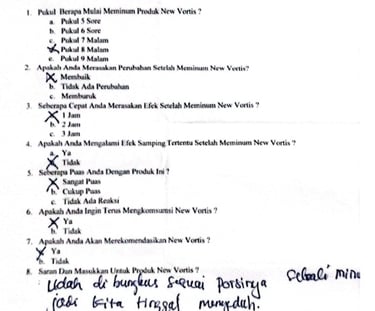 1. Pukul Berapa Mulai Meminum Produk New Vortis ?
a. Pukul 5 Sore
b. Pukul 6 Sore
c. Pukul 7 Malam
Pukul 8 Malam
e. Pukul 9 Malam
2. Apakah Anda Merasakan Perubahan Setelah Meminum New Vortis?
Membaik
b. Tidak Ada Perubahan
c. Memburuk
3. Seberapa Cepat Anda Merasakan Efek Setelah Meminum New Vortis ?
1 Jam
b. 2 Jam
c. 3 Jam
4. Apakah Anda Mengalami Efek Samping Tertentu Setelah Meminum New Vortis ?
a. Ya
Tidak
5. Seberapa Puas Anda Dengan Produk Ini ?
Sangat Puas
b. Cukup Puas
c. Tidak Ada Reaksi
6. Apakah Anda Ingin Terus Mengkomsumsi New Vortis ?
Ya
b. Tidak
7. Apakah Anda Akan Merekomendasikan New Vortis ?
Ya
b. Tidak
8. Saran Dan Masukkan Untuk Produk New Vortis ?
Udah di bungkus sesuai porsinya
jadi kita tinggal